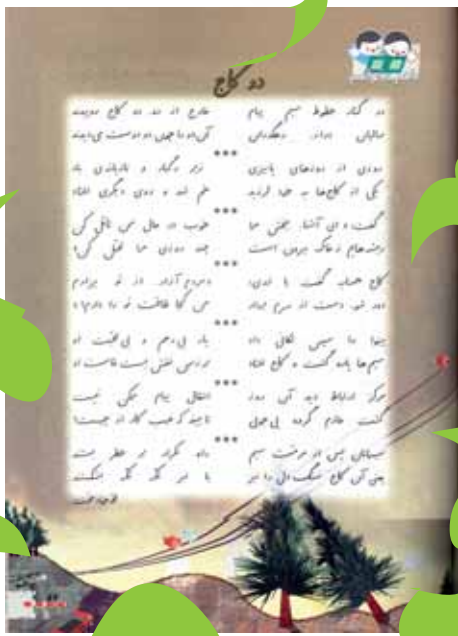 دو کاج
در کنار خطوط سیم پیام خارج از ده دو کاج روییدند
سالیان دراز رهگذران آن دو را چون دو دوست می‌دیدند
***
روزی از روزهای پاییزی زیر رگبار و تازیانه‌ی باد
یکی از کاج‌ها به خود لرزید خم شد و روی دیگری افتاد
***
گفت: «ای آشنا، ببخش مرا خوب در حال من تأمّل کن
ریشه‌هایم ز خاک بیرون است چند روزی مرا تحمّل کن»
***
کاج همسایه گفت با تندی: «مردم‌آزار، از تو بیزارم
دور شو، دست از سرم بردار من کجا طاقت تو را دارم؟»
***
بینوا را سپس تکانی داد یار بی‌رحم و بی‌محبّت او
سیم‌ها پاره گشت و کاج افتاد بر زمین نقش بست قامت او
***
مرکز ارتباط دید آن روز انتقال پیام ممکن نیست
گشت عازم گروه پی‌جویی تا ببیند که عیب کار از چیست؟
***
سیمبانان پس از مرمّت سیم راه تکرار بر خطر بستند
یعنی آن کاج سنگ‌دل را نیز با تبر تکّه تکّه بشکستند